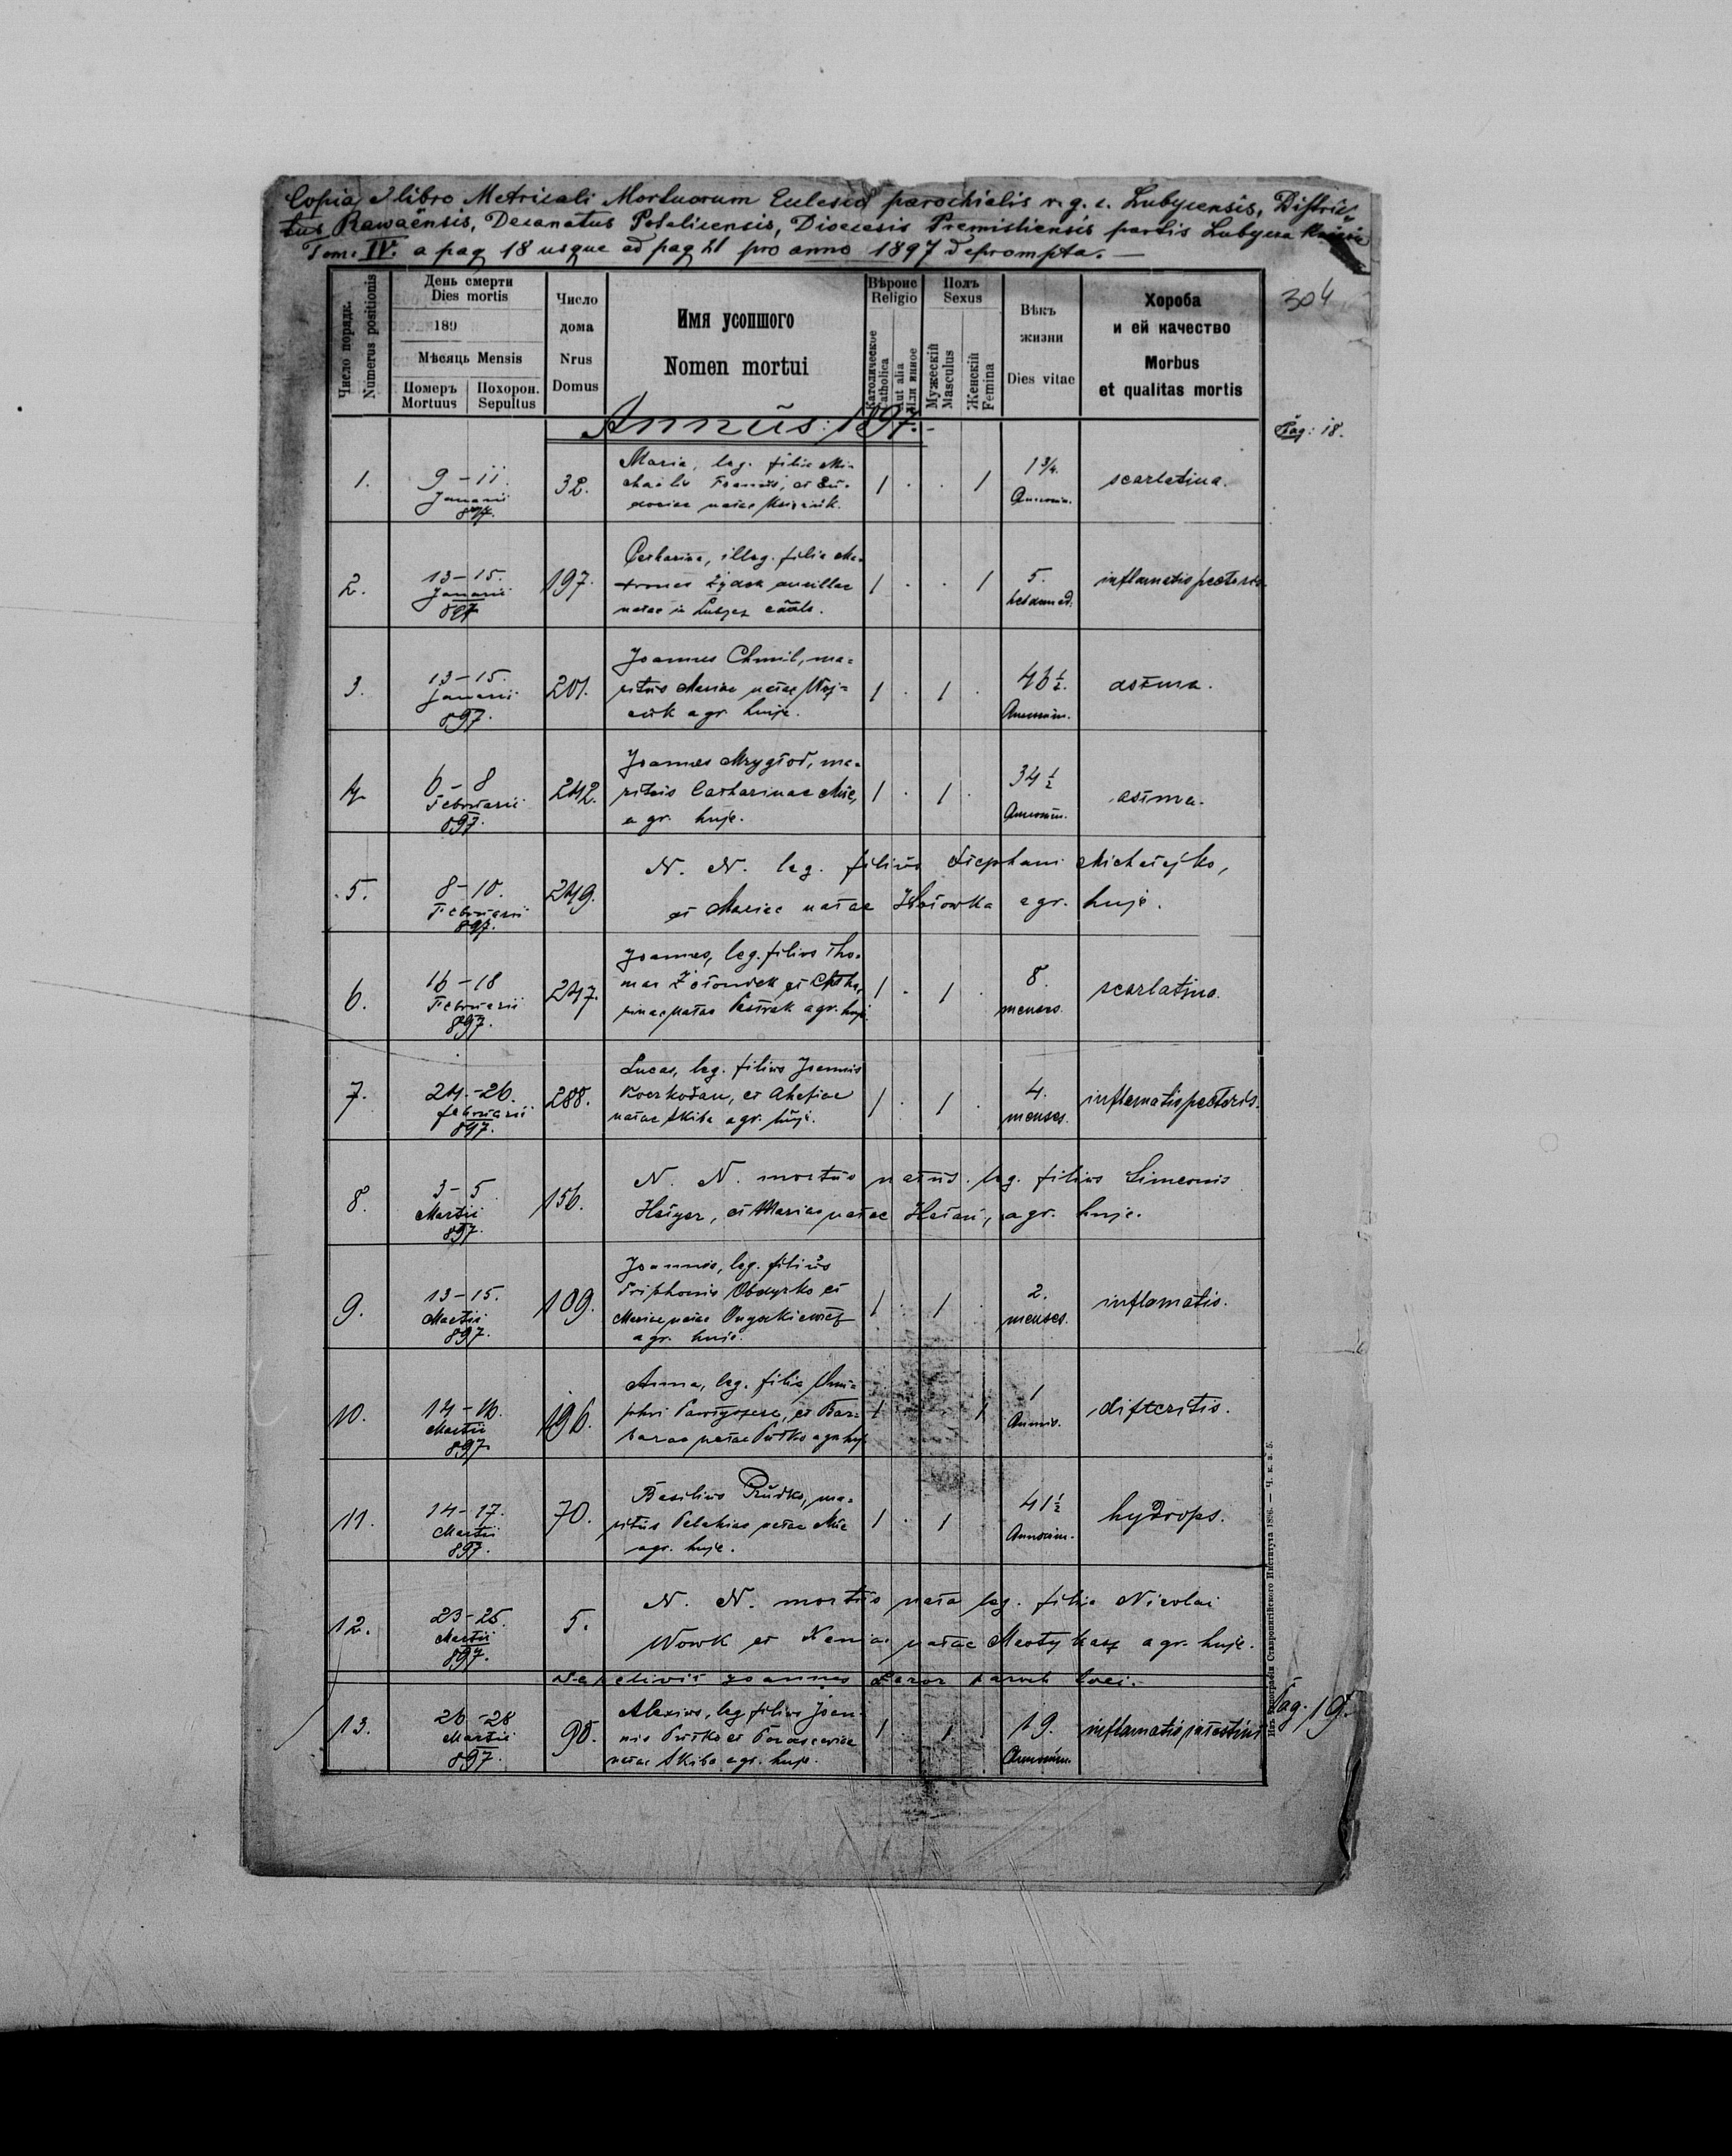 Copia e libro Metricali Mortuorum Eclesiae parochialis r. g. c. Lubycensis, Distric-
tus Rawaënsis, Decanatus Potelicensis, Dioecesis Premisliensis partis Lubycza
Tom: IV. a pag 18 usque ad pag 21 pro anno 1897 deprompta. —
304
Число порядк.
Numerus positionis
День смерти
Dies mortis
189
Мѣсяць Mensis
Померъ
Mortuus
Похорон.
Sepultus
Число
дома
Nrus
Domus
Имя усопшого
Nomen mortui
Вѣроис
Religio
Католическое
Catholica
Aut alia
Или иное
Полъ
Sexus
Мужескій
Masculus
Женскій
Femina
Вѣкъ
жизни
Dies vitae
Хороба
и ей качество
Morbus
et qualitas mortis
Annus: 1897.-
Pag: 18.
1.
9 - 11.
Januarii
897.
32.
Maria, leg. filia Mi-
chaelis et Eu-
dociae natae
1 . . 1
1 3/4.
Annorum.
scarlatina.
2.
13-15.
Januarii
897
197.
illeg. filia Ma-
ancillae
natae in
1 . . 1
5.
hebdomad.
inflamatio pectoris.
3.
13-15.
Januarii
897.
201.
Joannes Chmil, ma-
ritus Mariae natae Waj-
cuk agr. huje.
1 . 1 .
46 1/2.
Annorum.
astma.
4.
6 - 8
Februarii
897.
242.
Joannes Mrygłod, ma-
ritus Catharinae
agr. huje.
1 . 1 .
34 1/2
Annorum.
astma.
5.
8-10.
Februarii
897.
249.
N. N. leg. filius Stephani Michałejko,
et Mariae natae Hołowka agr. huje.
6.
16-18
Februarii
897.
247.
Joannes, leg. filius Tho-
mae Żołondek et Catha-
rinae natae agr. huje.
1 . 1 .
8.
menses.
scarlatina.
7.
24.-26.
februarii
897.
288.
Lucas, leg. filius Joannis
et Ahafiae
natae Skiba agr. huje.
1 . 1 .
4.
menses.
inflamatio pectoris.
8.
3 - 5.
Martii
897.
156.
N. N. mortuo natus. leg. filius Simeonis
et Mariae natae agr. huje.
9.
13-15.
Martii
897.
109.
Joannes, leg. filius
Triphonis Obdyrko et
Mariae natae Onyszkiewicz
agr. huje.
1 . 1 .
2.
menses.
inflamatio.
10.
14-16.
Martii
897.
196.
Anna, leg. filia Onu-
phri et Bar-
barae natae Prutko agr. huj.
1 1
1
Annus.
difteritis.
11.
14-17.
Martii
897.
70.
Basilius Prutko, ma-
ritus Pelahiae natae
agr. huje.
1 . 1
41 1/2
Annorum.
hydrops.
12.
23-25.
Martii
897.
5.
N. N. mortuo nata leg. filia Nicolai
Wowk et Xeniae natae agr. huje.
Sepelivit Joannes paroch loci.
Pag. 19.
13.
26-28
Martii
897.
90.
Alexius, leg filius Joan-
nis Prutko et Parasceviae
natae Skiba agr. huje.
1 1
19.
Annorum.
inflamatio intestini
Изъ Типографіи Ставропигійского Института 1886. — Ч. к. а. 5.